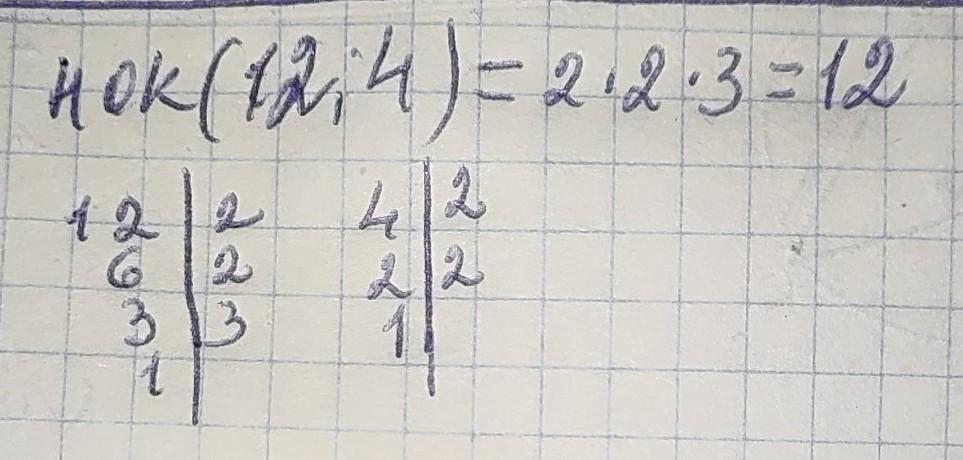 НОК(12; 4) = 2·2·3 = 12
12 | 2 4 | 2
6 | 2 2 | 2
3 | 3 1 |
1 |